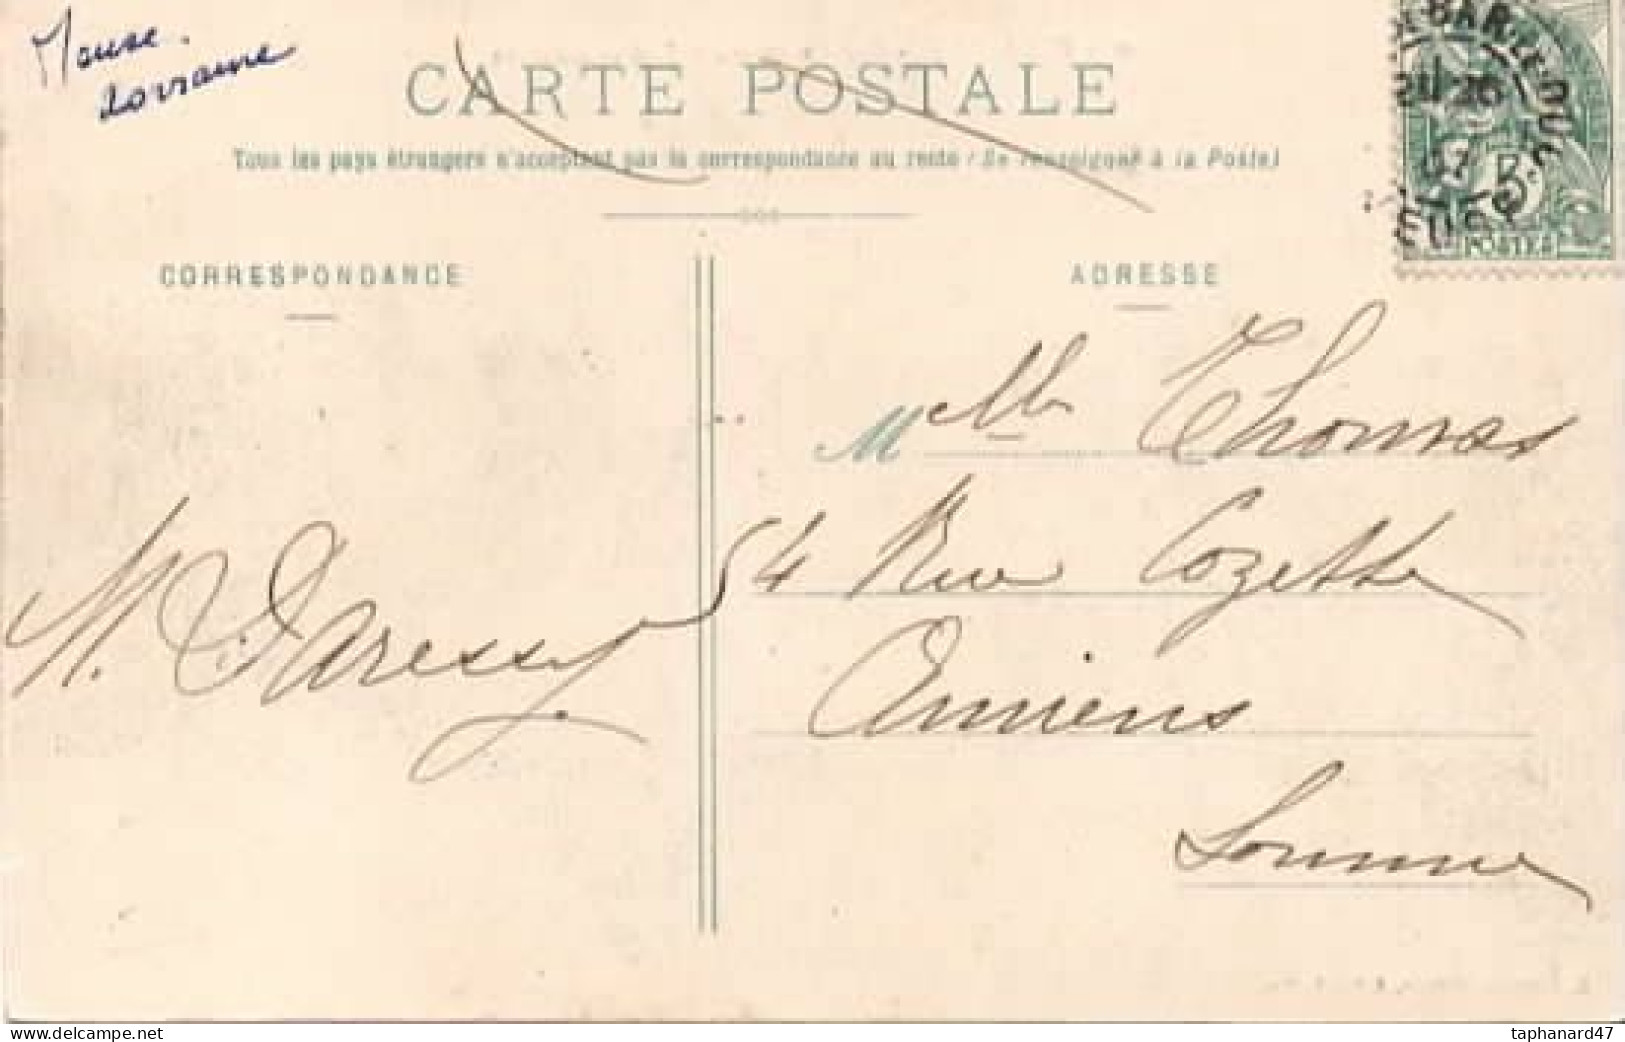 Meuse.
Lorraine
CARTE POSTALE
Tous les pays étrangers n'acceptant pas la correspondance au recto (Se renseigner à la Poste)
BAR-LE-DUC
26
07
5
POSTES
CORRESPONDANCE
ADRESSE
M. Daressy
M elle Thomas
54 Rue Cozette
Amiens
Somme
www.delcampe.net
taphanard47